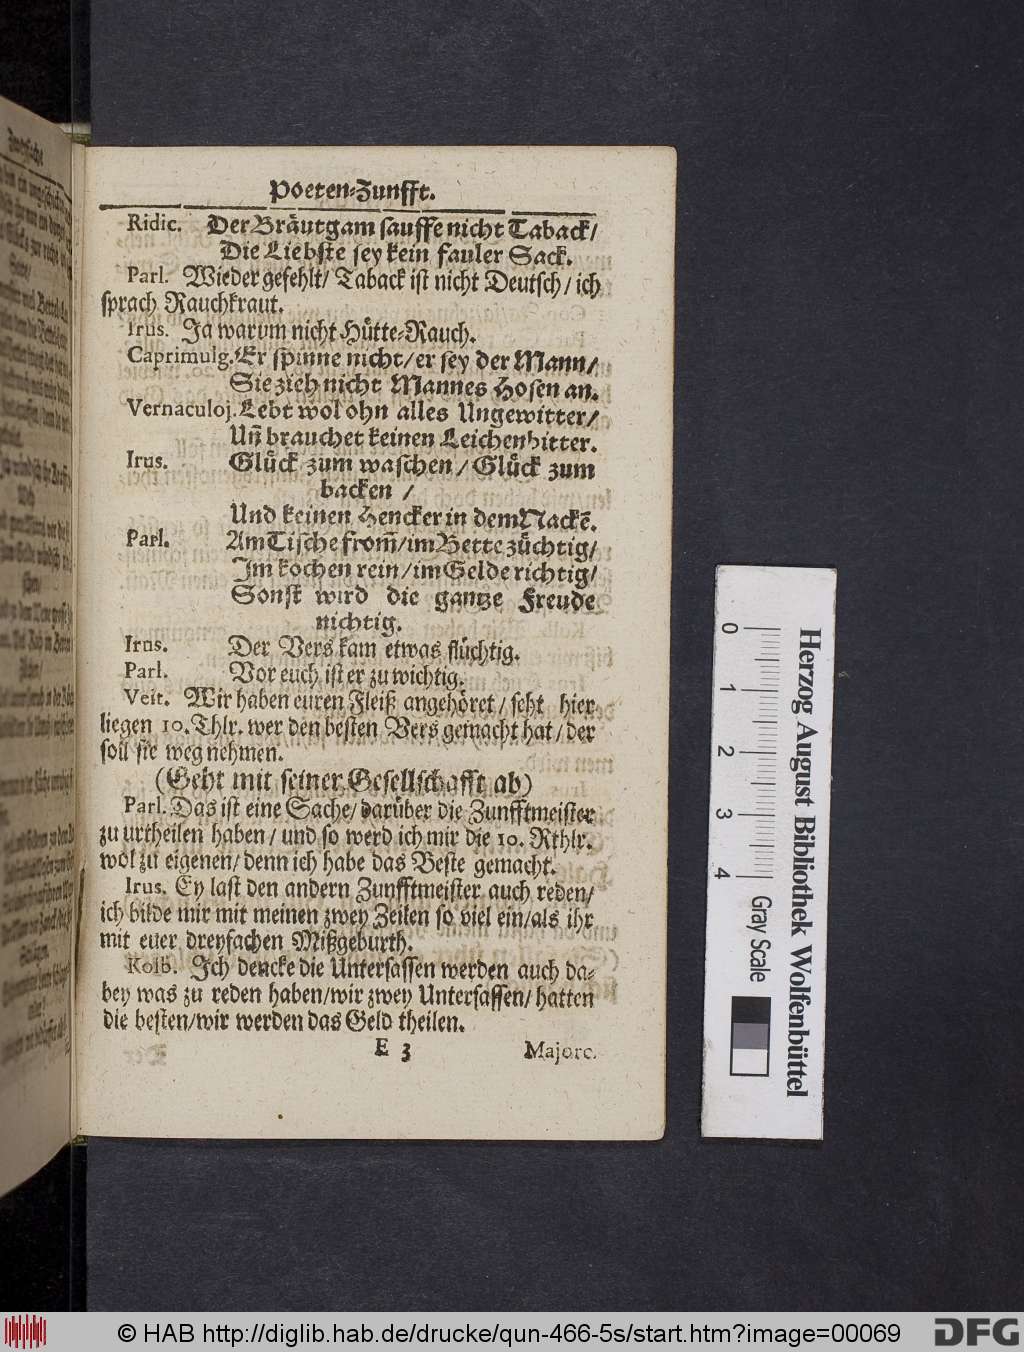 Poeten-Zunfft.
Ridic. Der Bräutgam sauffe nicht Taback/
Die Liebste sey kein fauler Sack.
Parl. Wieder gefehlt/ Taback ist nicht Deutsch/ ich
sprach Rauchkraut.
Irus. Ja warum nicht Hütte-Rauch.
Caprimulg. Er spinne nicht/ er sey der Mann/
Sie zieh nicht Mannes Hosen an.
Vernaculoj. Lebt wol ohn alles Ungewitter/
Uñ brauchet keinen Leichenbitter.
Irus. Glück zum waschen/ Glück zum
backen /
Und keinen Hencker in dem Nackẽ.
Parl. Am Tische from̃/ im Bette züchtig/
Im kochen rein/ im Gelde richtig/
Sonst wird die gantze Freude
nichtig.
Irus. Der Vers kam etwas flüchtig.
Parl. Vor euch ist er zu wichtig.
Veit. Wir haben euren Fleiß angehöret/ seht hier
liegen 10. Thlr. wer den besten Vers gemacht hat/ der
soll sie weg nehmen.
(Geht mit seiner Gesellschafft ab)
Parl. Das ist eine Sache/ darüber die Zunfftmeister
zu urtheilen haben/ und so werd ich mir die 10. Rthlr.
wol zu eigenen/ denn ich habe das Beste gemacht.
Irus. Ey last den andern Zunfftmeister auch reden/
ich bilde mir mit meinen zwey Zeilen so viel ein/ als ihr
mit euer dreyfachen Mißgeburth.
Kolb. Ich dencke die Untersassen werden auch da-
bey was zu reden haben/ wir zwey Untersassen/ hatten
die besten/ wir werden das Geld theilen.
E 3 Majorc.
0 1 2 3 4
Herzog August Bibliothek Wolfenbüttel
Gray Scale
© HAB http://diglib.hab.de/drucke/qun-466-5s/start.htm?image=00069
DFG